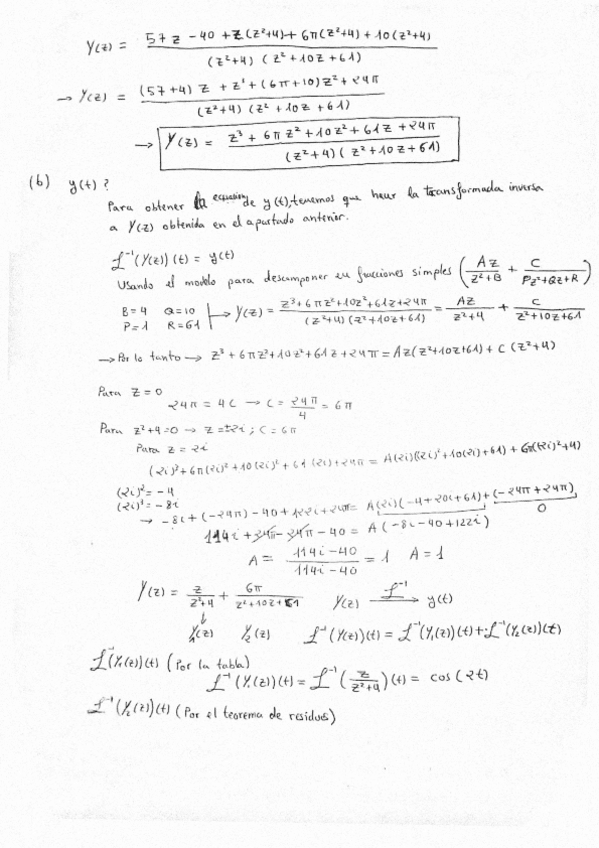 Y(z) = (57z - 40 + z(z²+4) + 6π(z²+4) + 10(z²+4)) / ((z²+4)(z²+10z+61))
→ Y(z) = ((57+4)z + z³ + (6π+10)z² + 24π) / ((z²+4)(z²+10z+61))
→ Y(z) = (z³ + 6πz² + 10z² + 61z + 24π) / ((z²+4)(z²+10z+61))
(b) y(t)?
Para obtener la ecuación de y(t), tenemos que hacer la transformada inversa
a Y(z) obtenida en el apartado anterior.
ℒ⁻¹(Y(z))(t) = y(t)
Usando el modelo para descomponer en fracciones simples (Az/(z²+B) + C/(Pz²+Qz+R))
B=4 Q=10 P=1 R=61 → Y(z) = (z³+6πz²+10z²+61z+24π)/((z²+4)(z²+10z+61)) = Az/(z²+4) + C/(z²+10z+61)
→ Por lo tanto → z³+6πz²+10z²+61z+24π = Az(z²+10z+61) + C(z²+4)
Para z=0
24π = 4C → C = 24π/4 = 6π
Para z²+4=0 → z=±2i ; C=6π
Para z=2i
(2i)³+6π(2i)²+10(2i)²+61(2i)+24π = A(2i)((2i)²+10(2i)+61)+6π((2i)²+4)
(2i)² = -4
(2i)³ = -8i
→ -8i+(-24π)-40+122i+24π = A(2i)(-4+20i+61)+(-24π+24π)
0
114i+24π-24π-40 = A(-8i-40+122i)
A = (114i-40)/(114i-40) = 1 A=1
Y(z) = z/(z²+4) + 6π/(z²+10z+61) Y(z) ―ℒ⁻¹→ y(t)
↓
Y₁(z) Y₂(z) ℒ⁻¹(Y(z))(t) = ℒ⁻¹(Y₁(z))(t) + ℒ⁻¹(Y₂(z))(t)
ℒ⁻¹(Y₁(z))(t) (Por la tabla)
ℒ⁻¹(Y₁(z))(t) = ℒ⁻¹(z/(z²+4))(t) = cos(2t)
ℒ⁻¹(Y₂(z))(t) (Por el teorema de residuos)